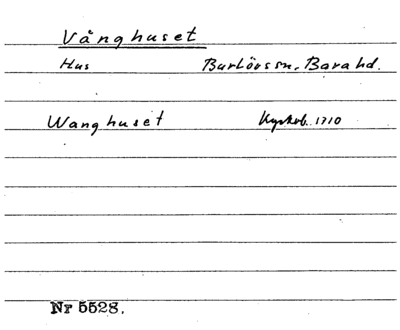 Vånghuset
Hus Burlövs sn. Bara hd.
Wanghuset Kyrkob. 1710
Nr 5528.